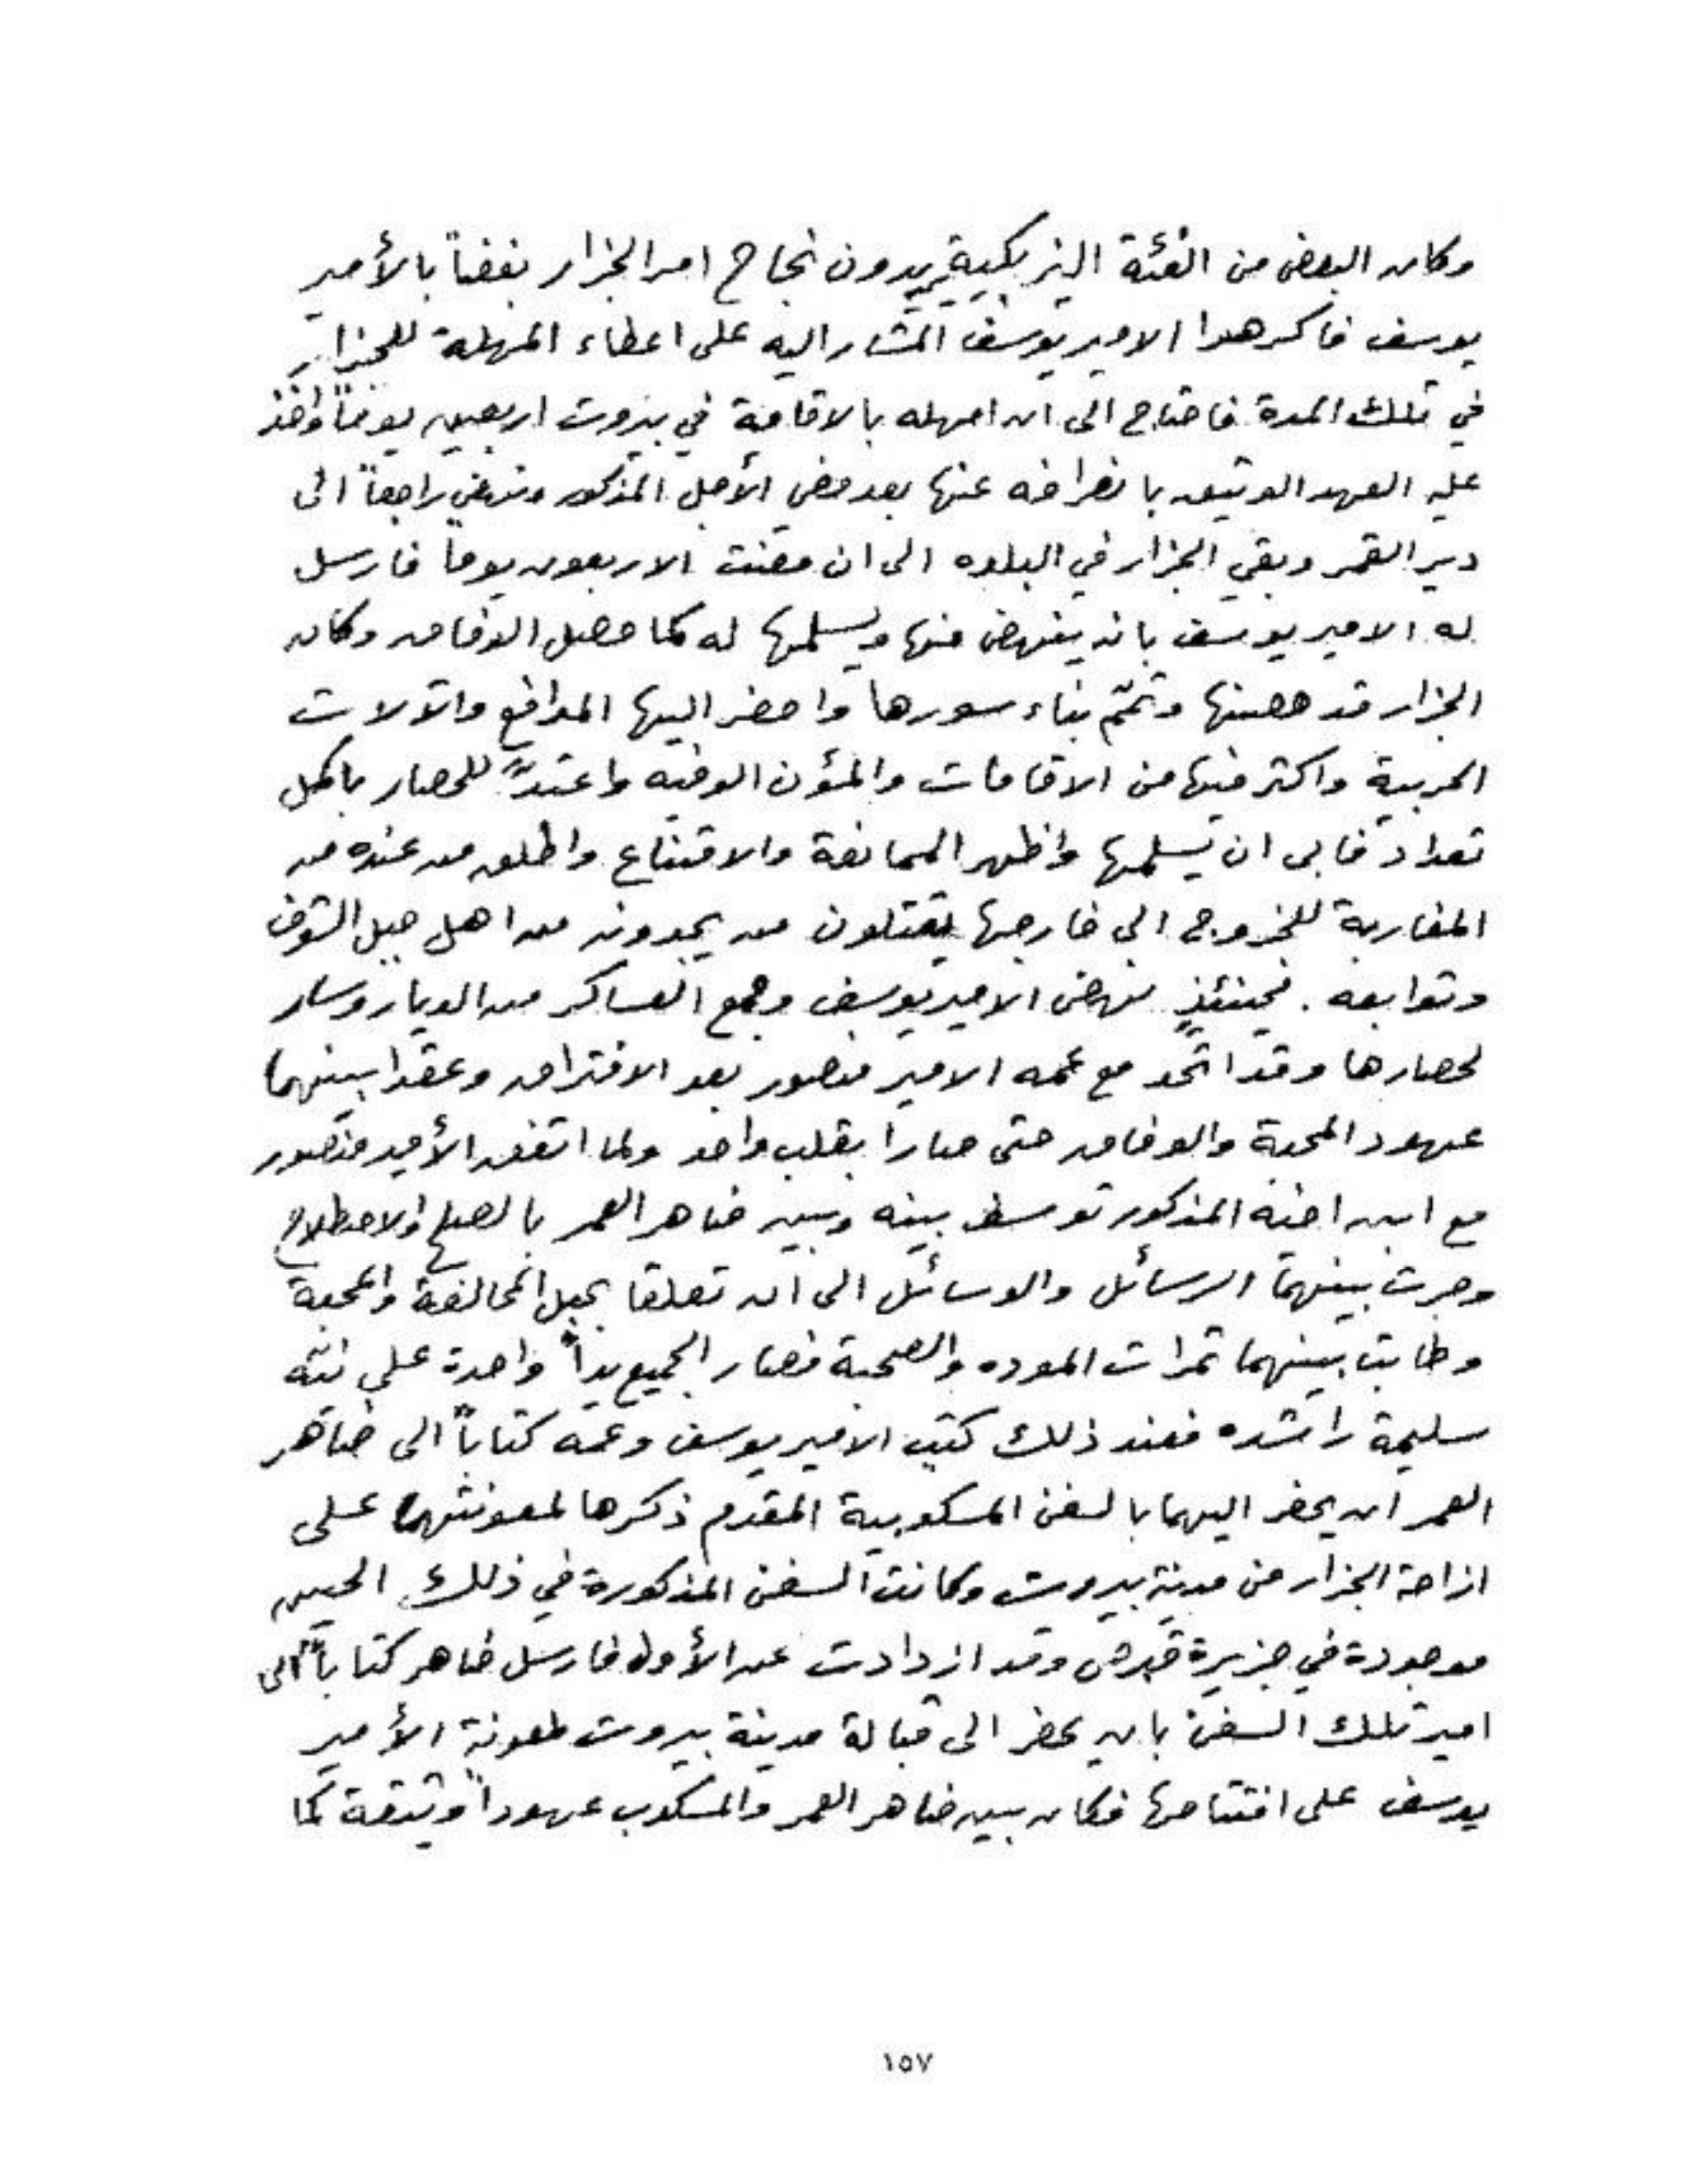 وكان البعض من الفئة اليزبكية يريدون نجاح امر الجزار بغضاً بالأمير
يوسف فاكرهوا الامير يوسف المشار اليه على اعطاء المهلة للجزار
في تلك المدة فاحتاج الى ان امهله بالاقامة في بيروت اربعين يوماً واخذ
عليه العهد الوثيق بانصرافه عنها بعد مضي الأجل المذكور ونهض راجعاً الى
دير القمر وبقي الجزار في البلده الى ان مضت الاربعون يوماً فارسل
له الامير يوسف بانه ينهض منها ويسلمها له كما حصل الوفاق وكان
الجزار قد حصنها وتمّم بناء سورها واحضر اليها المدافع والآلات
الحربية واكثر فيها من الاقامات والمؤن الوفيه واعتدّ للحصار باكمل
تعداد فابى ان يسلمها واظهر الممانعة والامتناع واطلق من عنده من
المغاربة للخروج الى خارجها يقتلون من يجدونه من اهل جبل الشوف
وتوابعه . فحينئذٍ نهض الامير يوسف وجمع العساكر من الديار وسار
لحصارها وقد اتحد مع عمه الامير منصور بعد الافتراق وعقدا بينهما
عهود المحبة والوفاق حتى صارا بقلب واحد ولما اتفق الأمير منصور
مع ابن اخيه المذكور توسط بينه وبين ضاهر العمر بالصلح والاصطلاح
وجرت بينهما الرسائل والوسائل الى ان تعلقا بحبل المحالفة والمحبة
وطابت بينهما ثمرات الموده والصحبة فصار الجميع يداً واحدة على نيّه
سليمة راشده فعند ذلك كتب الامير يوسف وعمه كتاباً الى ضاهر
العمر ان يحضر اليهما بالسفن المسكوبية المقدم ذكرها لمعونتهما على
ازاحة الجزار من مدينة بيروت وكانت السفن المذكورة في ذلك الحين
موجودة في جزيرة قبرص وقد ازدادت عن الأول فارسل ضاهر كتاباً الى
امير تلك السفن بان يحضر الى قبالة مدينة بيروت لمعونة الأمير
يوسف على افتتاحها فكان بين ضاهر العمر والمسكوب عهوداً وثيقة كما
١٥٧